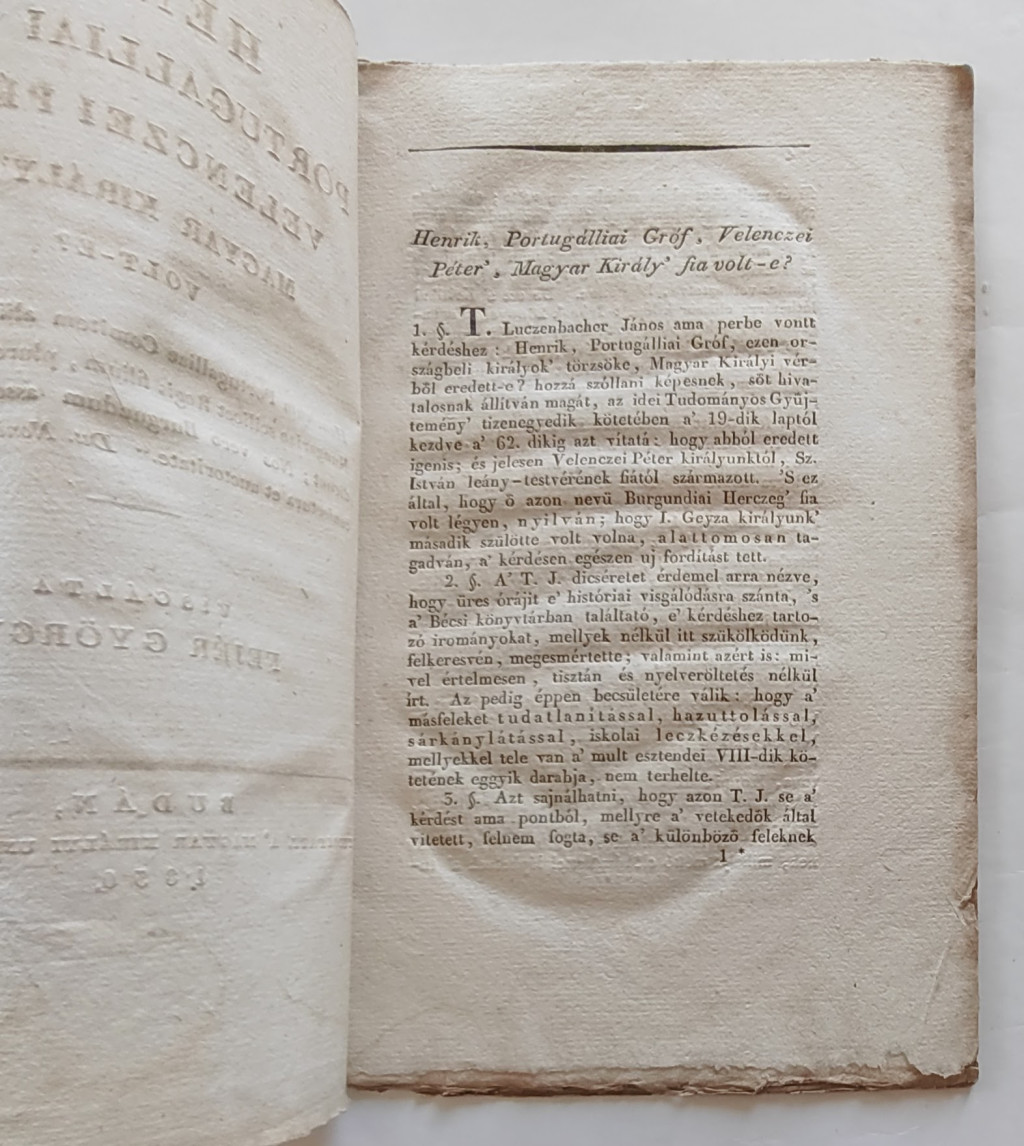 Henrik, Portugálliai Gróf, Velenczei
Péter', Magyar Király' fia volt-e?
1. §. T. Luczenbacher János ama perbe vontt
kérdéshez: Henrik, Portugálliai Gróf, ezen or-
szágbeli királyok' törzsöke, Magyar Királyi vér-
ből eredett-e? hozzá szóllani képesnek, sőt hiva-
talosnak állítván magát, az idei Tudományos Gyűj-
temény' tizenegyedik kötetében a' 19-dik laptól
kezdve a' 62. dikig azt vítatá: hogy abból eredett
igenis; és jelesen Velenczei Péter királyunktól, Sz.
István leány-testvérének fiától származott. 'S ez
által, hogy ő azon nevű Burgundiai Herczeg' fia
volt légyen, nyilván; hogy I. Geyza királyunk'
második szülötte volt volna, alattomosan ta-
gadván, a' kérdésen egészen uj fordítást tett.
2. §. A' T. J. dicséretet érdemel arra nézve,
hogy üres óráját e' históriai visgálódásra szánta, 's
a' Bécsi könyvtárban találtató, e' kérdéshez tarto-
zó irományokat, mellyek nélkül itt szükölködünk,
felkeresvén, megesmértette; valamint azért is: mi-
vel értelmesen, tisztán és nyelveröltetés nélkül
írt. Az pedig éppen becsületére válik: hogy a'
másfeleket tudatlanítással, hazuttolással,
sárkánylátással, iskolai leczkézésekkel,
mellyekkel tele van a' mult esztendei VIII-dik kö-
tetének eggyik darabja, nem terhelte.
3. §. Azt sajnálhatni, hogy azon T. J. se a'
kérdést ama pontból, mellyre a' vetekedők által
vitetett, felnem fogta, se a' különböző feleknek
1 *